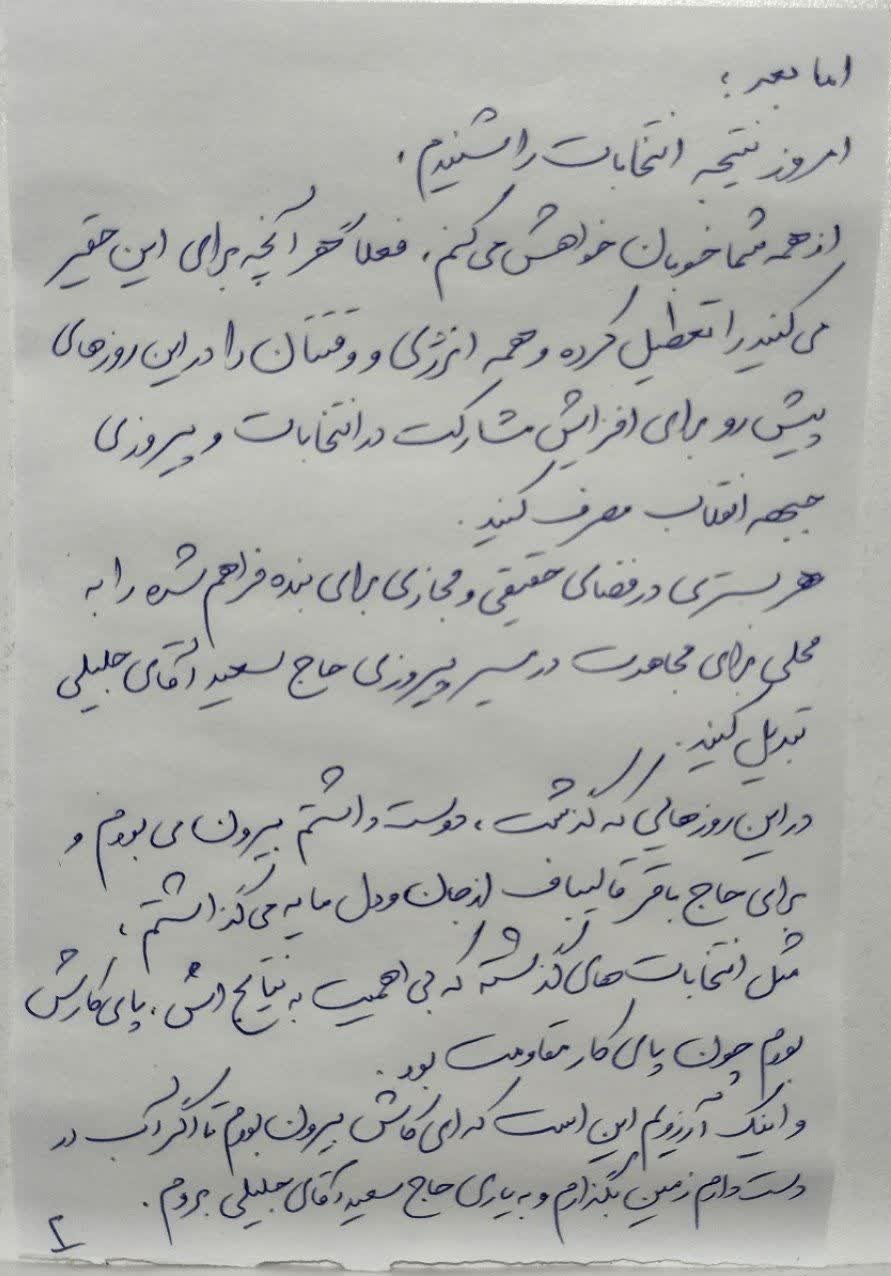 اما بعد؛
امروز نتیجه انتخابات را شنیدم.
از همه شما خوبان خواهش می‌کنم، فعلاً هر آنچه برای این حقیر
می‌کنید را تعطیل کرده و همه انرژی و وقتتان را در این روزهای
پیش رو برای افزایش مشارکت در انتخابات و پیروزی
جبهه انقلاب صرف کنید.
هر بستری در فضای حقیقی و مجازی برای بنده فراهم شده را به
محلی برای مجاهدت در مسیر پیروزی حاج سعید آقای جلیلی
تبدیل کنید.
در این روزهایی که گذشت، دوست داشتم بیرون می بودم و
برای حاج باقر قالیباف از جان و دل مایه می‌گذاشتم،
مثل انتخابات های گذشته که بی اهمیت به نتایج اش، پای کارش
بودم چون پای کار مقاومت بود.
و اینک آرزویم این است که ای کاش بیرون بودم تا اگر آب در
دست دارم زمین بگذارم و به یاری حاج سعید آقای جلیلی بروم.
۲